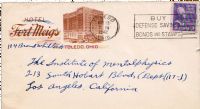 HOTEL
Fort Meigs
TOLEDO, OHIO
BUY
DEFENSE SAVINGS
BONDS AND STAMPS
The Institute of Mentalphysics
213 South Hobart Blvd. (Dept
Los Angeles, California